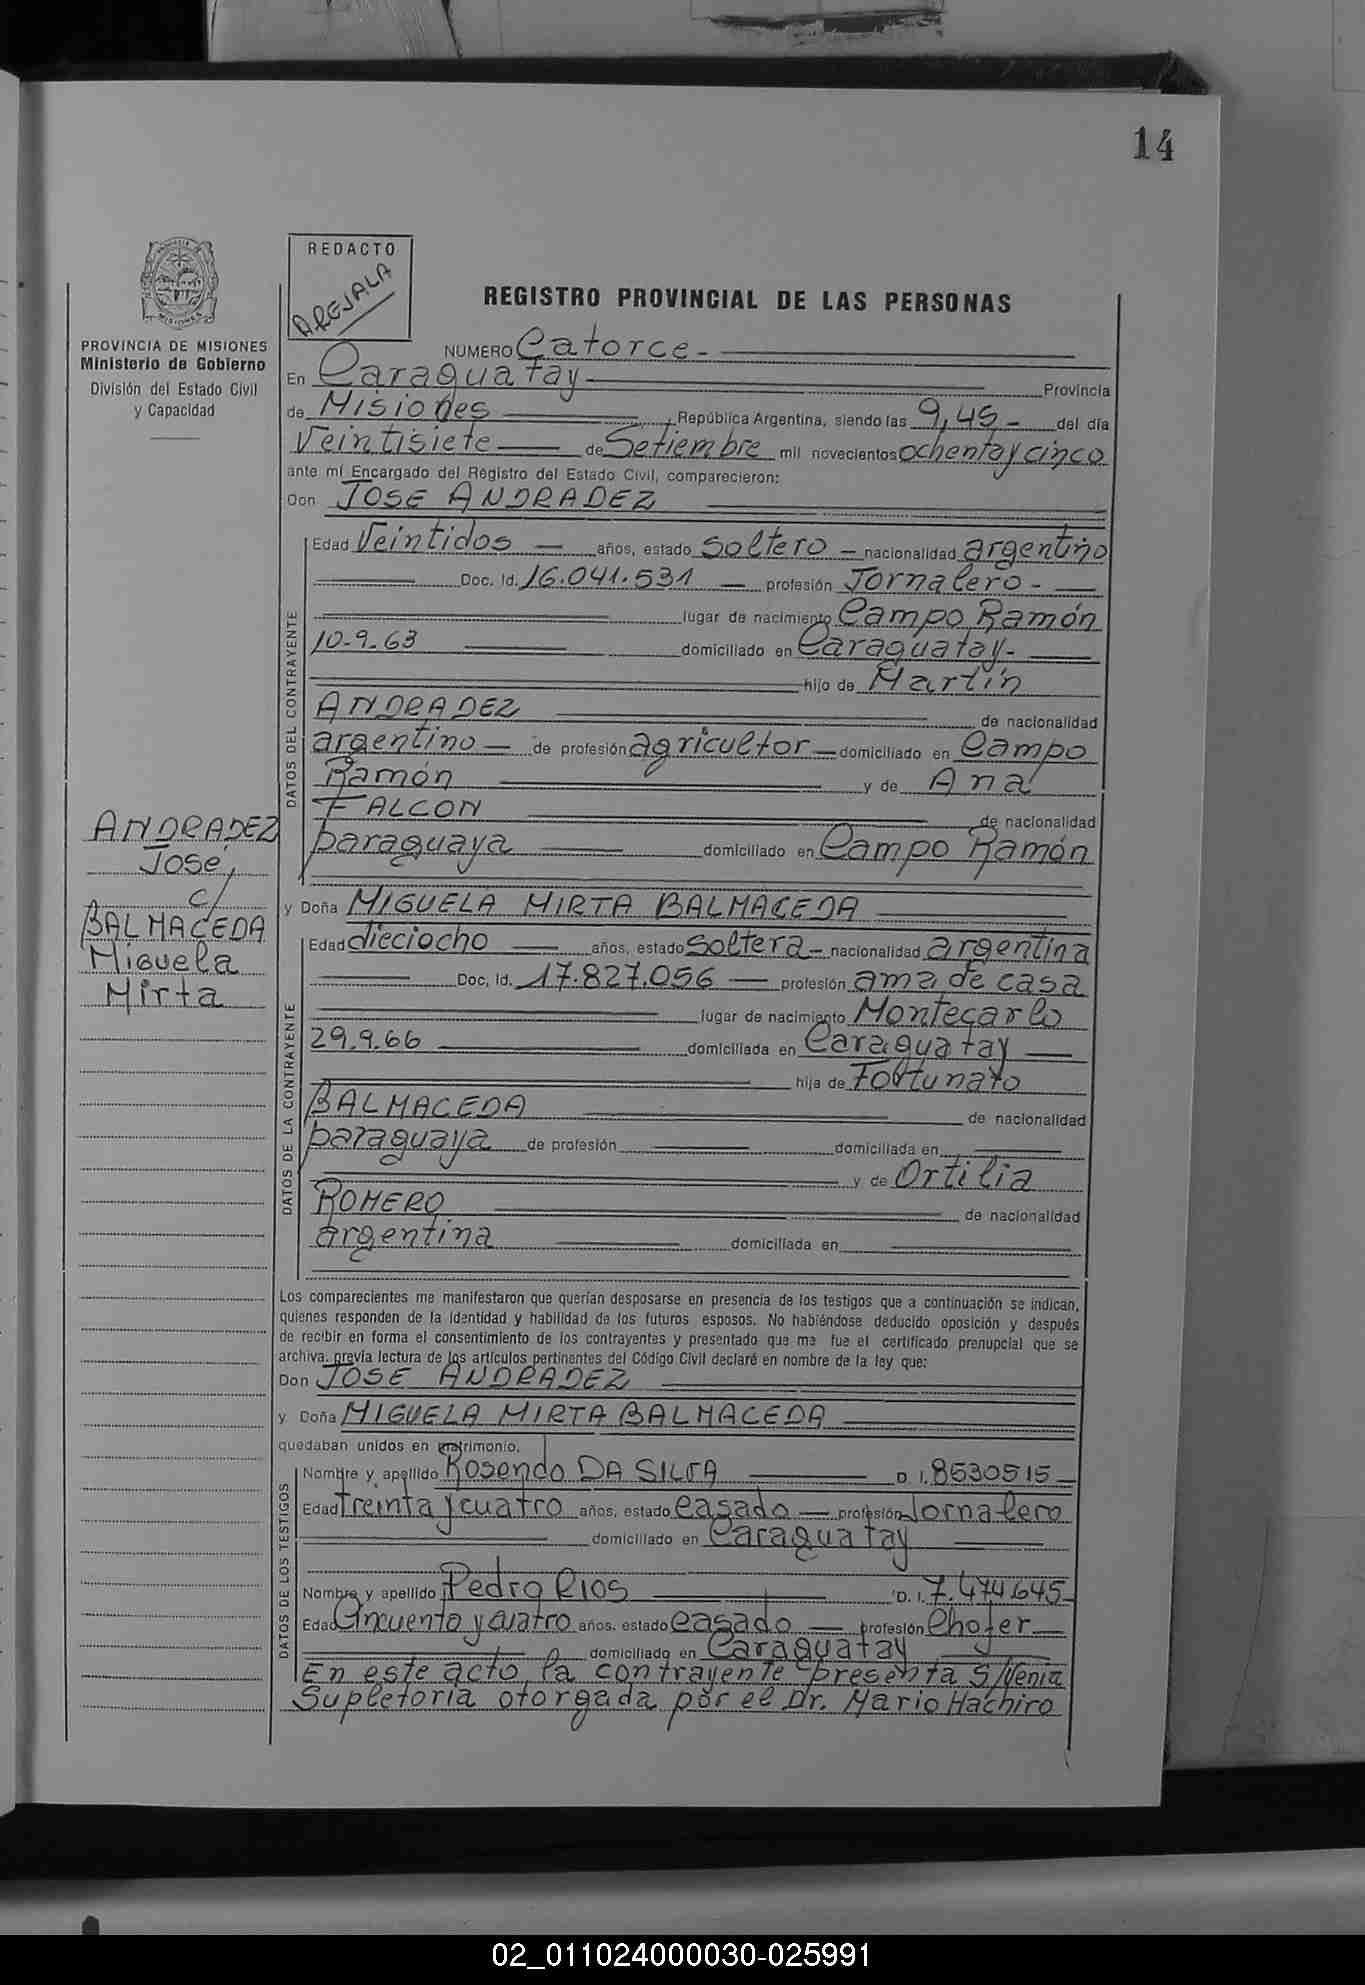 14
REDACTO
AREJALA
REGISTRO PROVINCIAL DE LAS PERSONAS
PROVINCIA DE MISIONES
Ministerio de Gobierno
División del Estado Civil
y Capacidad
NUMERO Catorce -
En Caraguatay Provincia
de Misiones República Argentina, siendo las 9,45 - del día
Veintisiete de Setiembre mil novecientos ochenta y cinco
ante mí Encargado del Registro del Estado Civil, comparecieron:
Don JOSE ANDRADEZ
DATOS DEL CONTRAYENTE
Edad Veintidos años, estado soltero - nacionalidad argentino
Doc. Id. 16.041.531 profesión Jornalero -
lugar de nacimiento Campo Ramón
10-9-63 domiciliado en Caraguatay-
hijo de Martín
ANDRADEZ de nacionalidad
argentino - de profesión agricultor - domiciliado en Campo
Ramón y de Ana
FALCON de nacionalidad
paraguaya domiciliado en Campo Ramón
ANDRADEZ
Jose,
c/
BALMACEDA
Miguela
Mirta
y Doña MIGUELA MIRTA BALMACEDA
DATOS DE LA CONTRAYENTE
Edad dieciocho años, estado soltera - nacionalidad argentina
Doc, Id. 17.827.056 profesión ama de casa
lugar de nacimiento Montecarlo
29.9.66 domiciliada en Caraguatay
hija de Fortunato
BALMACEDA de nacionalidad
paraguaya de profesión domiciliada en
y de Ortilia
ROMERO de nacionalidad
argentina domiciliada en
Los comparecientes me manifestaron que querían desposarse en presencia de los testigos que a continuación se indican,
quienes responden de la identidad y habilidad de los futuros esposos. No habiéndose deducido oposición y después
de recibir en forma el consentimiento de los contrayentes y presentado que me fue el certificado prenupcial que se
archiva, previa lectura de los artículos pertinentes del Código Civil declaré en nombre de la ley que:
Don JOSE ANDRADEZ
y Doña MIGUELA MIRTA BALMACEDA
quedaban unidos en matrimonio.
DATOS DE LOS TESTIGOS
Nombre y apellido Rosendo DA SILVA D. I. 8530515
Edad treinta y cuatro años, estado casado - profesión Jornalero
domiciliado en Caraguatay
Nombre y apellido Pedro RIOS D. I. 7.474645
Edad Cincuenta y cuatro años, estado casado - profesión Chofer
domiciliado en Caraguatay
En este acto la contrayente presenta S/Venia
Supletoria otorgada por el Dr. Mario Hachiro
02_011024000030-025991